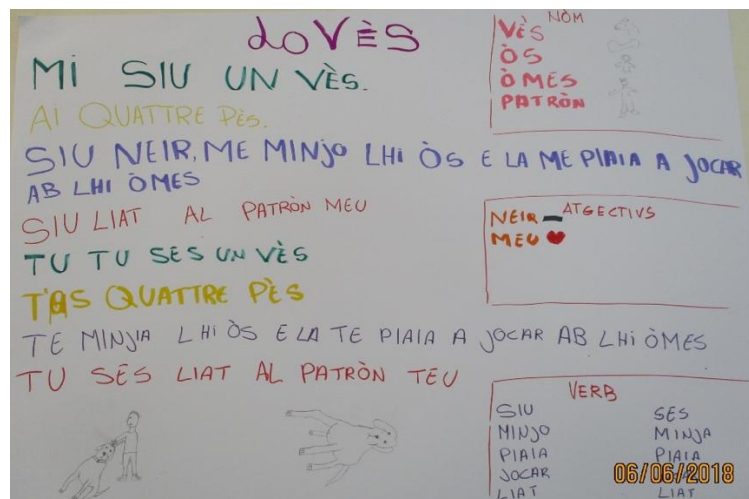 LO VÈS
MI SIU UN VÈS.
AI QUATTRE PÈS.
SIU NEIR, ME MINJO LHI ÒS E LA ME PIAIA A JOCAR
AB LHI ÒMES
SIU LIAT AL PATRÒN MEU
TU TU SES UN VÈS
T'AS QUATTRE PÈS
TE MINJIA LHI ÒS E LA TE PIAIA A JOCAR AB LHI ÒMES
TU SES LIAT AL PATRÒN TEU
NÒM
VÈS
ÒS
ÒMES
PATRÒN
ATGECTIVS
NEIR
MEU
VERB
SIU SES
MINJO MINJA
PIAIA PIAIA
JOCAR
LIAT LIAT
06/06/2018